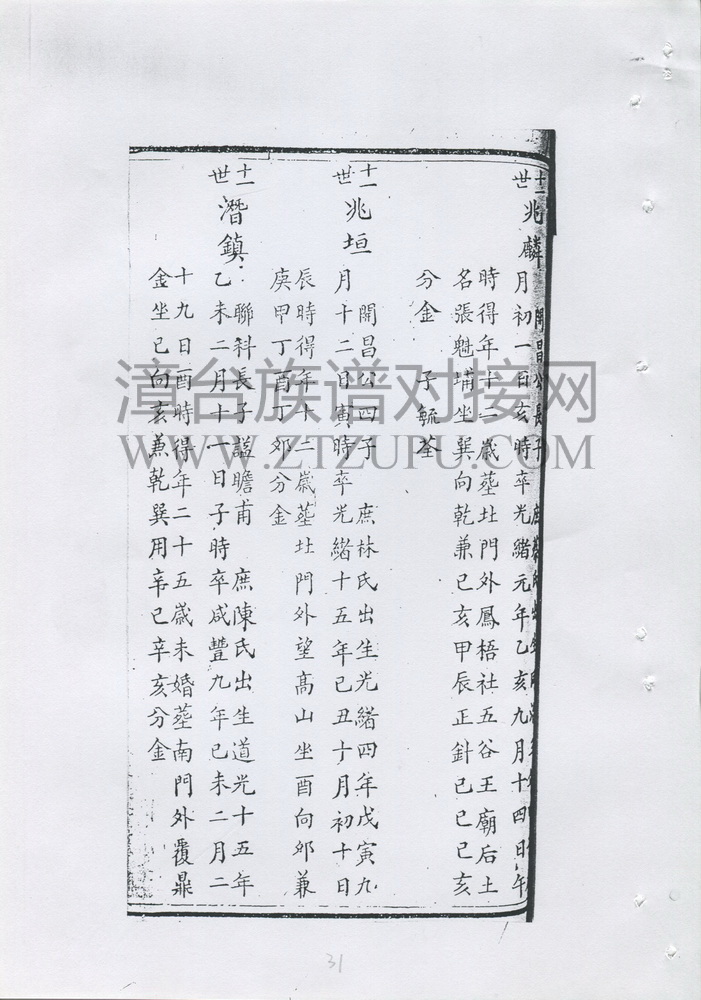 十一世 兆麟 開昌公長子 庶
月初一日亥時卒光緒元年乙亥九月十四日午
時得年十二歲塟圵門外鳳梧社五谷王廟后土
名張魁埔坐巽向乾兼巳亥甲辰正針己巳己亥
分金 子毓荃
十一世 兆垣 開昌公四子 庶林氏出生光緒四年戊寅九
月十二日寅時卒光緒十五年己丑十月初十日
辰時得年十二歲塟圵門外望高山坐酉向夘兼
庚甲丁酉丁夘分金
十一世 潛鎮 聯科長子諡瞻甫 庶陳氏出生道光十五年
乙未二月十一日子時卒咸豐九年己未二月二
十九日酉時得年二十五歲未婚塟南門外覆鼎
金坐巳向亥兼乾巽用辛巳辛亥分金
漳台族谱对接网
WWW.ZTZUPU.COM
31